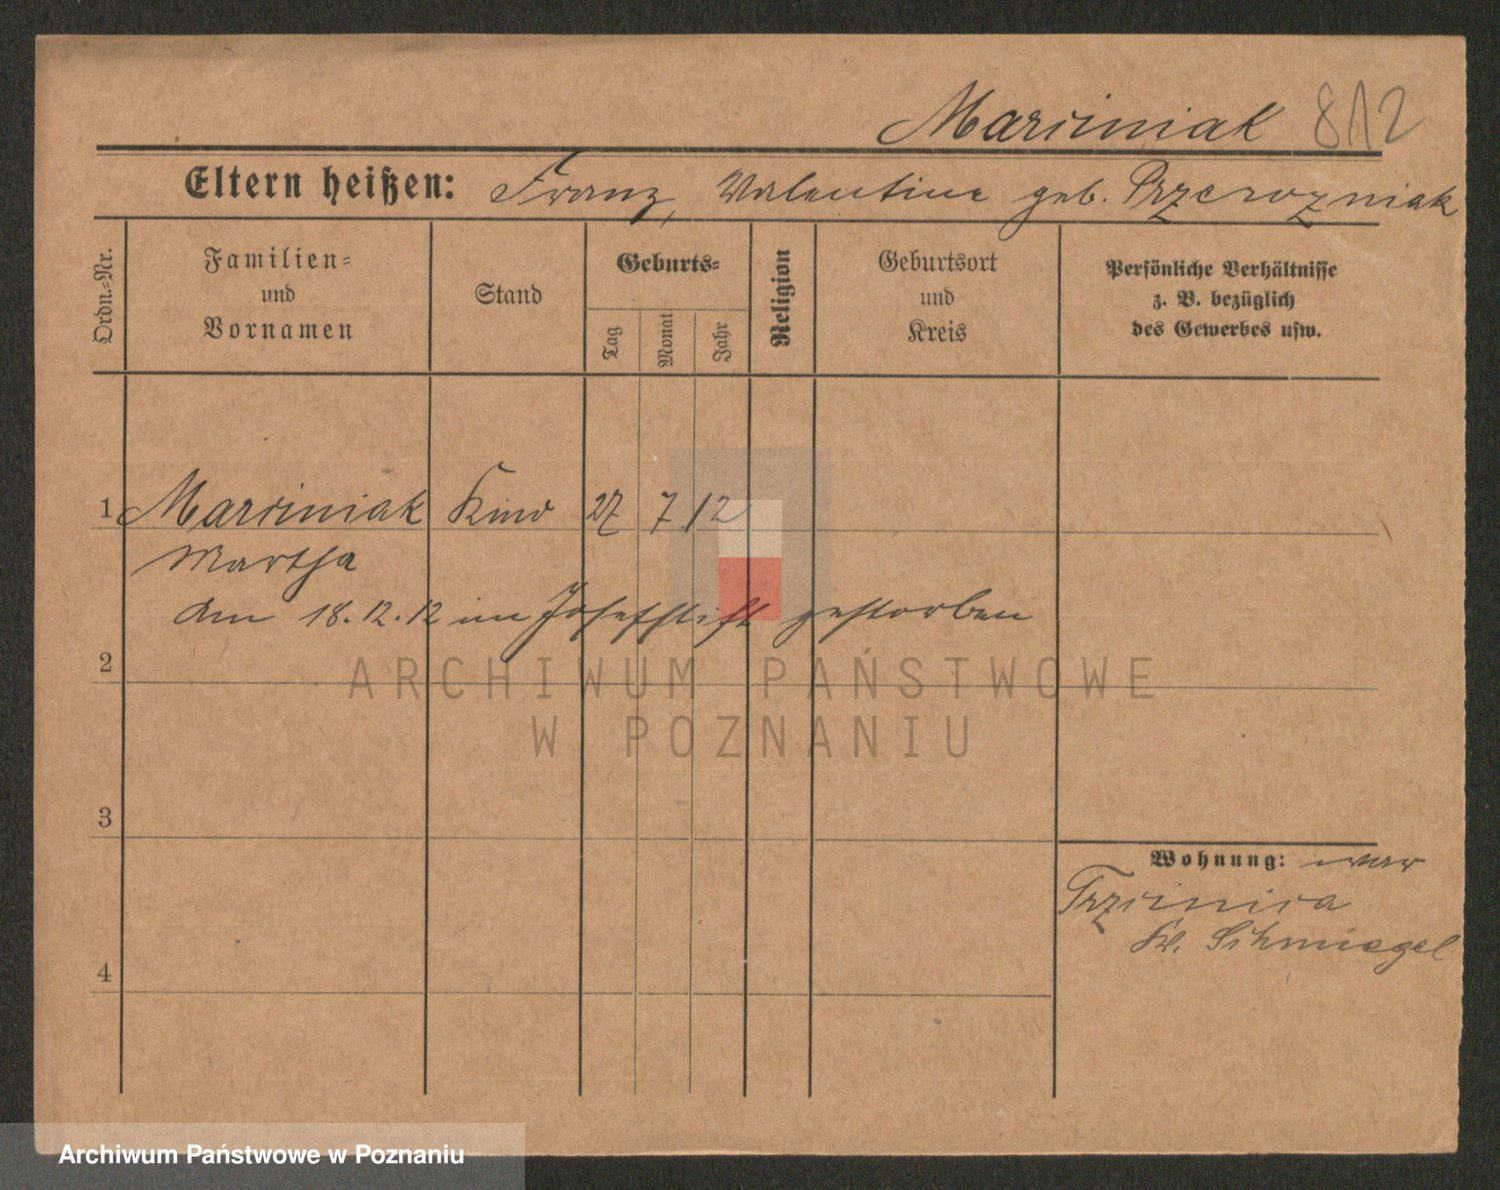 Marciniak 812
Eltern heißen: Franz, Valentine geb.
Ordn.-Nr.
Familien- und Vornamen
Stand
Geburts-
Tag
Monat
Jahr
Religion
Geburtsort und Kreis
Persönliche Verhältnisse
z. B. bezüglich
des Gewerbes usw.
1 Marciniak Kind 27 7 12
Martha
Am 18.12.12 im Josefstift gestorben
2
ARCHIWUM PAŃSTWOWE
W POZNANIU
3
Wohnung: war
Trzcinica
Kr. Schmiegel
4
Archiwum Państwowe w Poznaniu